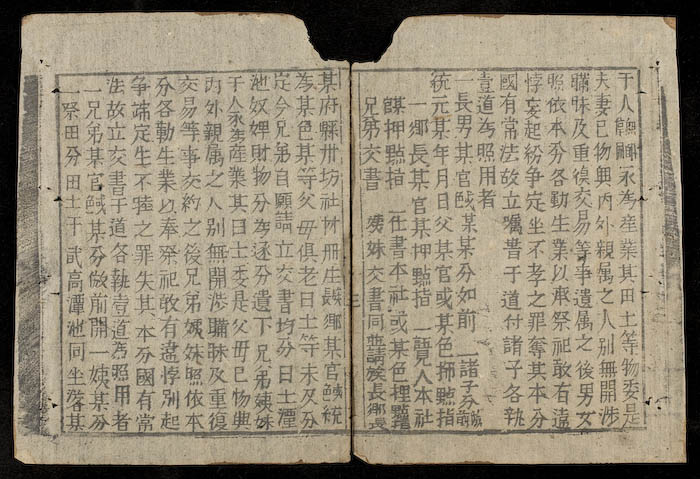 于人永為產業其田土等物委是
夫妻已物與内外親属之人别無開涉
矓昧及重復交易等事遺属之後男女
照依本分各勤生業以奉祭祀敢有違
悖妄起紛争定坐不孝之罪奪其本分
國有常法故立囑書于道付諸子各執
壹道為照用者
一長男某官職某某分如前 一諸子分
統元某年月日父某官或某色押點指
一鄉長某官某押點指 一見人本社
某押點指 一任書本社或某色押點指
兄弟交書 姨妹交書同 並請族長鄉長
某府縣州坊社村冊庄長鄉某官職統
為某色某等父毋俱老日土等未及分
定今兄弟自願請立交書均分田土潭
池奴婢財物分為逐分遺下兄弟姨妹
于人永為産業其田土委是父毋已物典
内外親属之人别無開涉矓昧及重復
交易等事交約之後兄弟姨妹照依本
分各勤生業以奉祭祀敢有違悖别起
争端定坐不睦之罪失其本分國有常
法故立交書于道各執壹道為照用者
一兄弟某官職某分做前開一姨某分
一祭田分田土于畝高潭池同坐落某